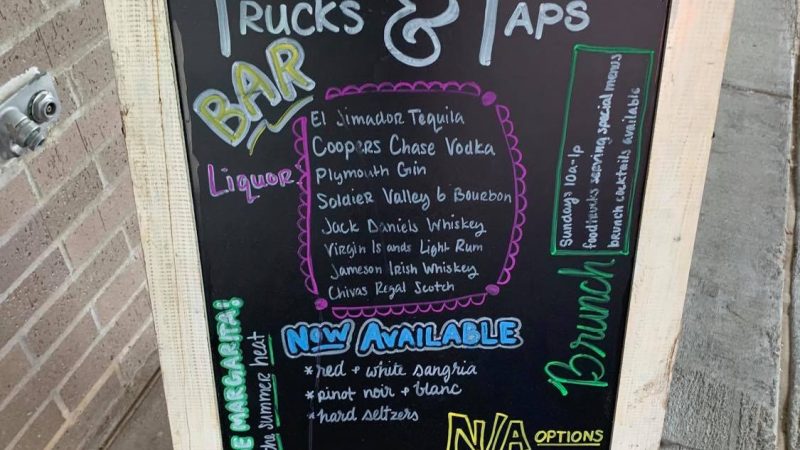 TRUCKS & TAPS
BAR
Liquor:
El Jimador Tequila
Coopers Chase Vodka
Plymouth Gin
Soldier Valley 6 Bourbon
Jack Daniels Whiskey
Virgin Islands Light Rum
Jameson Irish Whiskey
Chivas Regal Scotch
Now Available
*red + white sangria
*pinot noir + blanc
*hard seltzers
N/A OPTIONS
Brunch
Sundays 10a-1p
foodtrucks serving special menus
brunch cocktails available
MARGARITA!
the summer heat